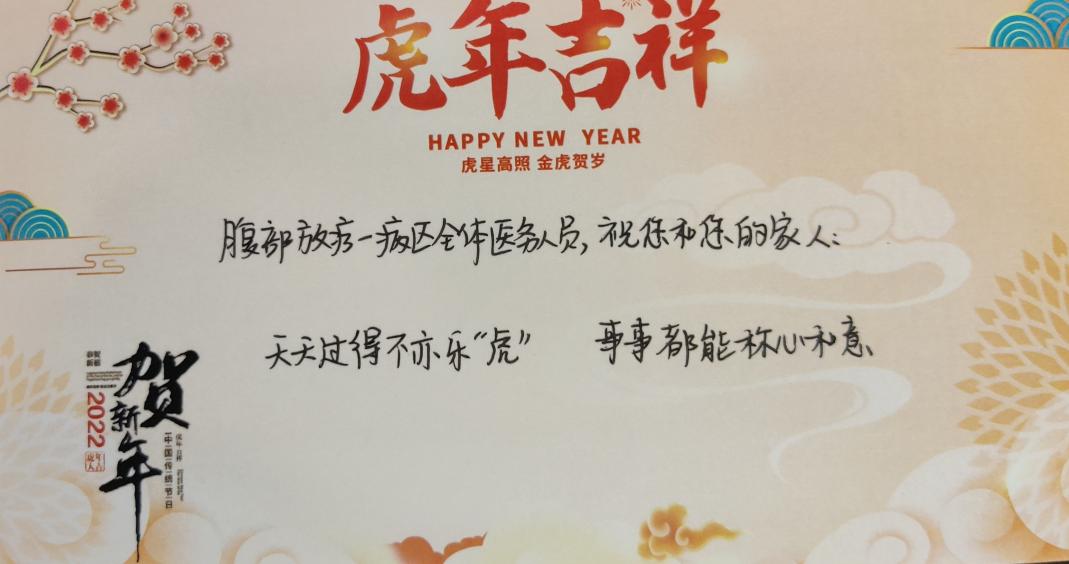 虎年吉祥
HAPPY NEW YEAR
虎星高照 金虎贺岁
腹部放疗一病区全体医务人员,祝您和您的家人:
天天过得不亦乐“虎” 事事都能称心和意
恭贺
新禧
贺
新
年
2022
虎年
大吉
虎年吉祥
中国传统节日